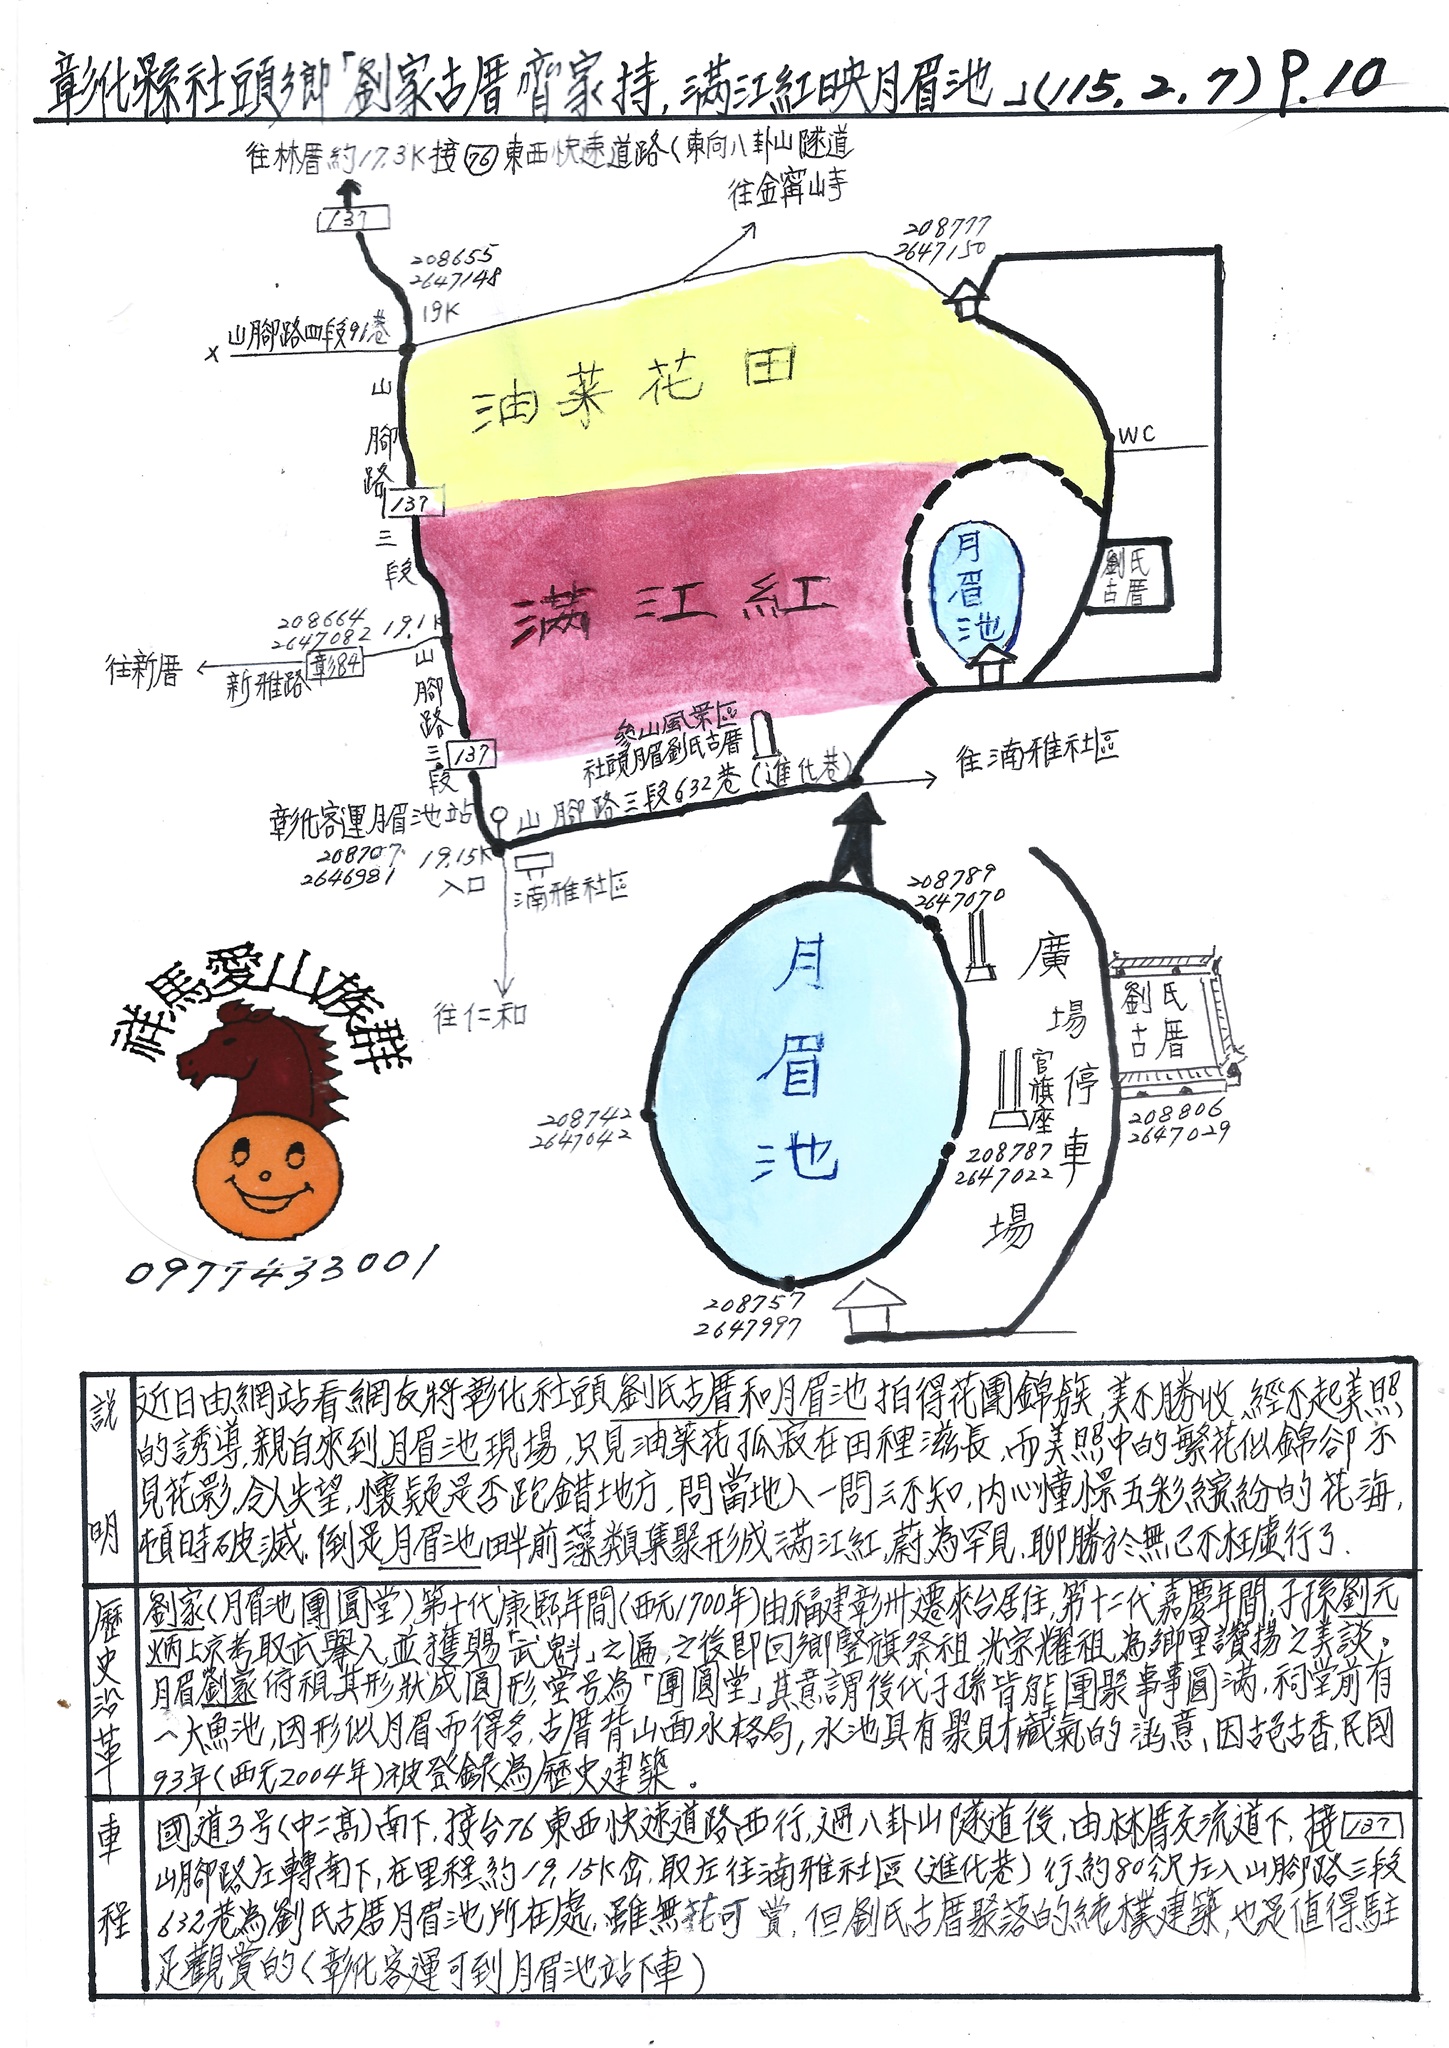 彰化縣社頭鄉「劉家古厝齊家持,滿江紅映月眉池」(115.2.7) P.10
往林厝約17.3K接76東西快速道路(東向八卦山隧道
往金甯山寺
137
208655
2647148
19K
208777
2647150
X 山腳路四段91巷
油菜花田
山腳路
137
三段
WC
月眉池
劉氏古厝
滿江紅
208664
2647082
19.1K
往新厝
新雅路
彰84
山腳路
137
三段
參山風景區
社頭月眉劉氏古厝
山腳路三段632巷(進化巷)
往湳雅社區
彰化客運月眉池站
208707
2646981
19.15K
入口
湳雅社區
往仁和
祥馬愛山族群
0977433001
208789
2647070
月眉池
廣場
停車場
官旗座
劉氏古厝
208742
2647042
208787
2647022
208806
2647029
208757
2647997
說明
近日由網站看網友將彰化社頭劉氏古厝和月眉池拍得花團錦簇,美不勝收,經不起美照
的誘導,親自來到月眉池現場,只見油菜花孤寂在田裡滋長,而美照中的繁花似錦卻不
見花影,令人失望,懷疑是否跑錯地方,問當地人一問三不知,內心憧憬五彩繽紛的花海,
頓時破滅.倒是月眉池畔前藻類集聚形成滿江紅,蔚為罕見,聊勝於無已不枉虛行了.
歷史沿革
劉家(月眉池團圓堂),第十代康熙年間(西元1700年)由福建彰州遷來台居住,第十二代嘉慶年間,子孫劉元
炳上京考取武舉人,並獲賜「武魁」之匾,之後即回鄉豎旗祭祖,光宗耀祖,為鄉里讚揚之美談。
月眉劉家俯視其形狀成圓形,堂号為「團圓堂」其意謂後代子孫皆能團聚事事圓滿,祠堂前有
一大魚池,因形似月眉而得名,古厝背山面水格局,水池具有聚財藏氣的涵意,因古色古香,民國
93年(西元2004年)被登錄為歷史建築。
車程
國道3号(中二高)南下,接台76東西快速道路西行,過八卦山隧道後,由林厝交流道下,接137
山腳路左轉南下,在里程約19.15K岔,取左往湳雅社區(進化巷)行約80公尺左入山腳路三段
632巷為劉氏古厝月眉池所在處,雖無花可賞,但劉氏古厝聚落的純樸建築,也是值得駐
足觀賞的(彰化客運可到月眉池站下車)